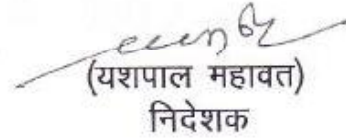 (यशपाल महावत)
निदेशक